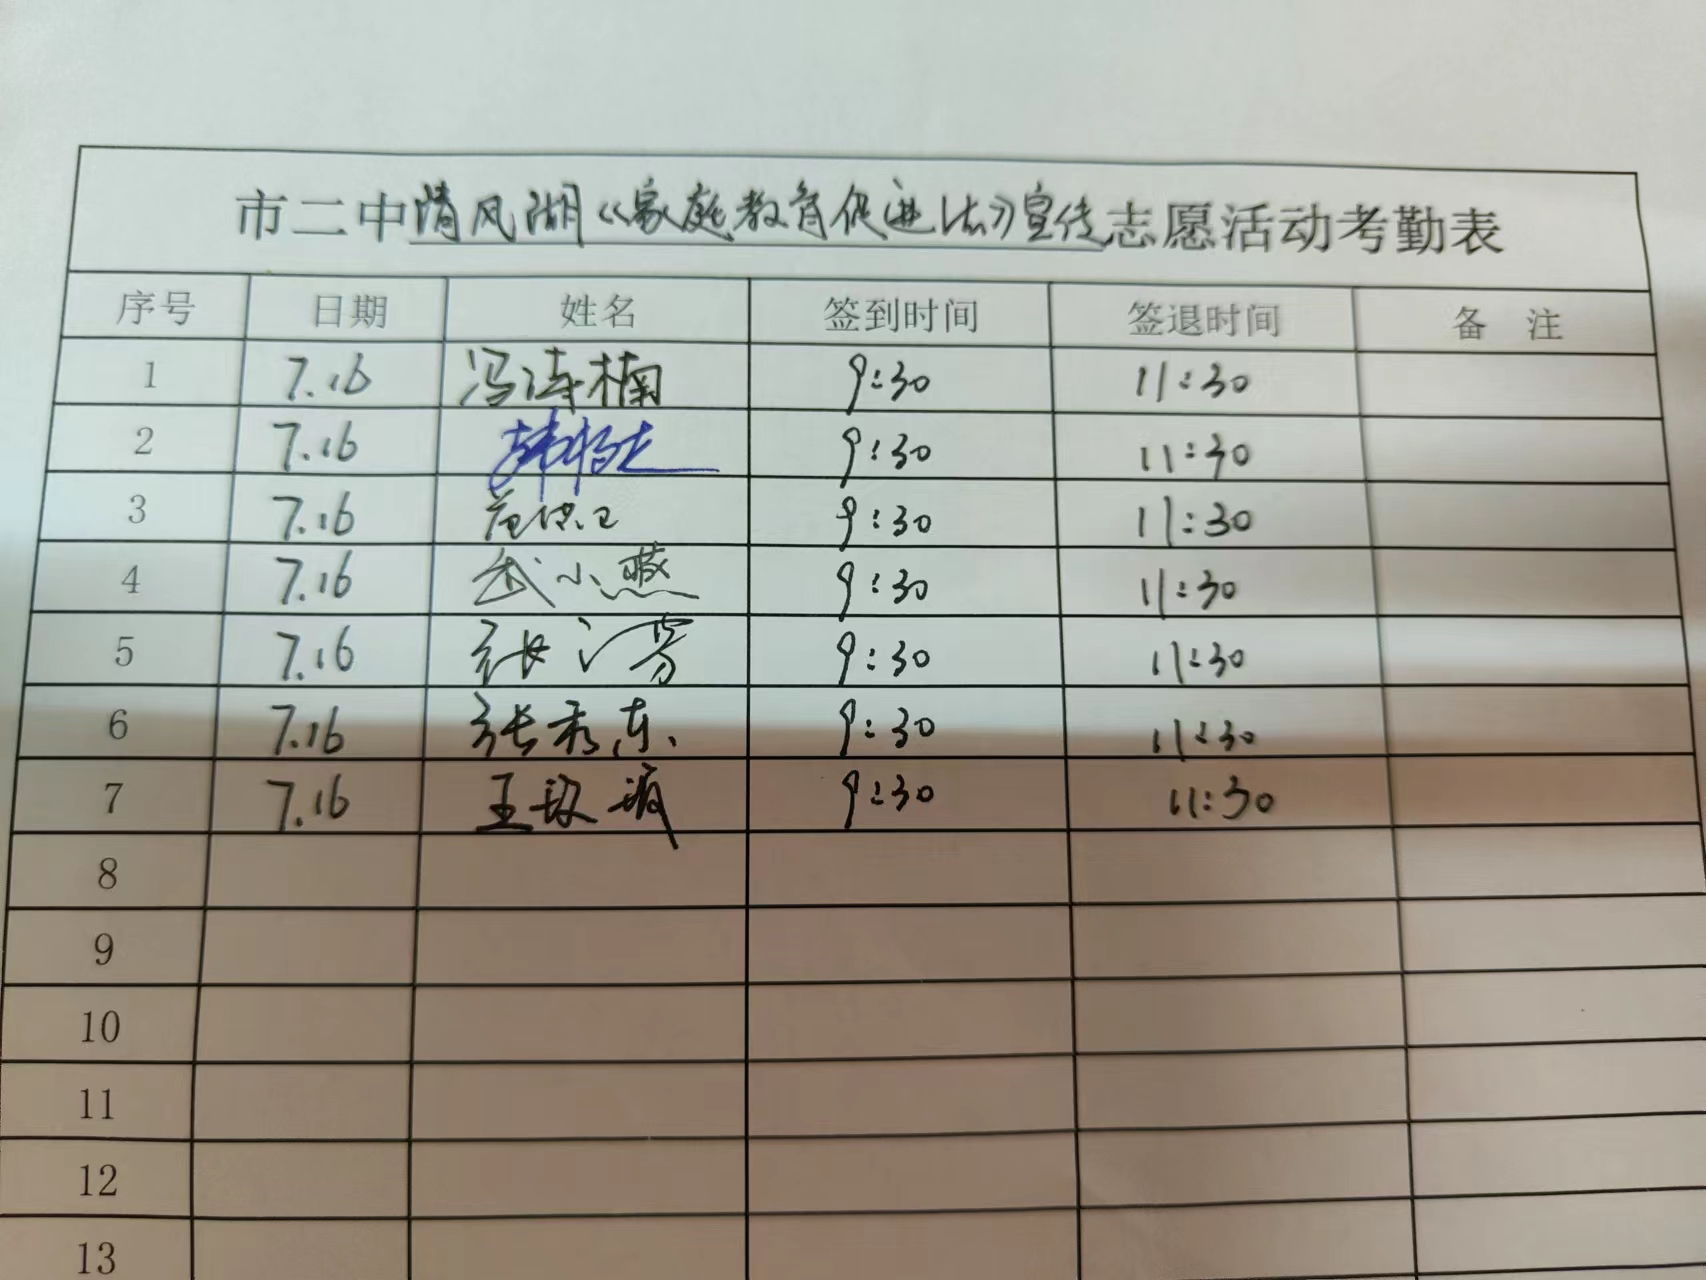 市二中清风湖《家庭教育促进法》宣传志愿活动考勤表
序号 日期 姓名 签到时间 签退时间 备 注
1 7.16 冯涛楠 9:30 11:30
2 7.16 9:30 11:30
3 7.16 9:30 11:30
4 7.16 武小燕 9:30 11:30
5 7.16 张 9:30 11:30
6 7.16 张秀东 9:30 11:30
7 7.16 王 9:30 11:30
8
9
10
11
12
13